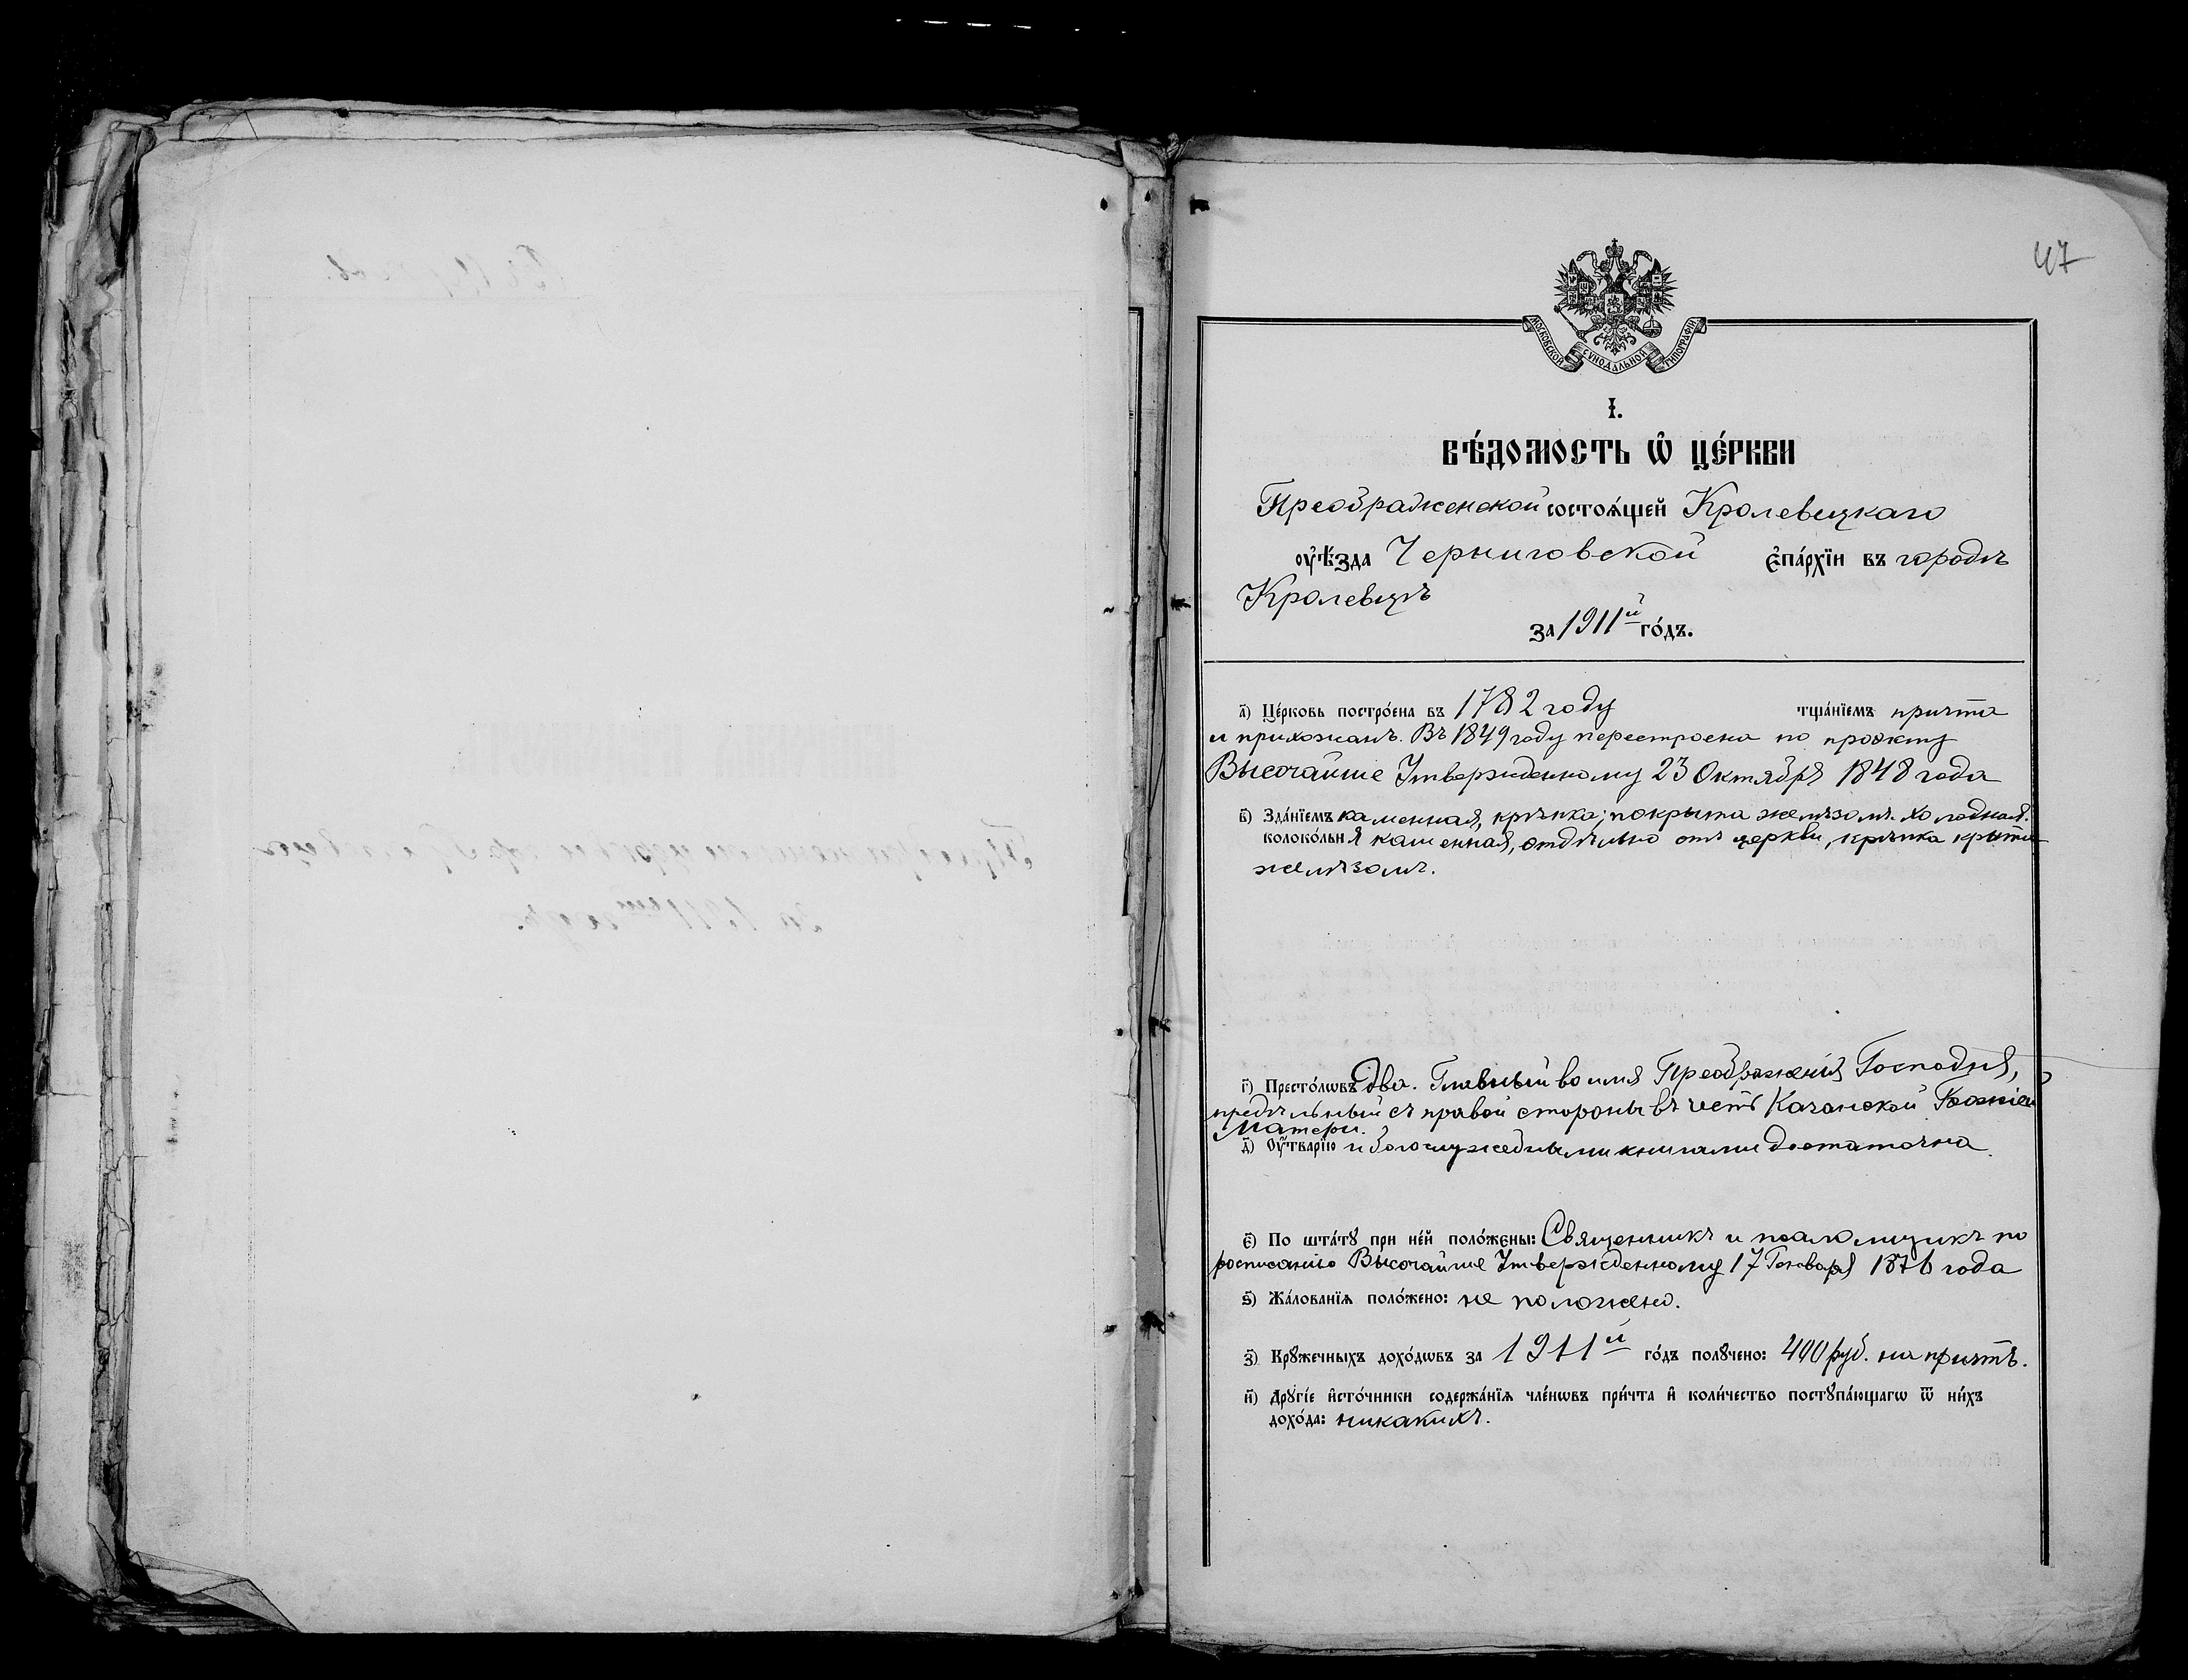 47
МОСКОВСКОЙ СѴНОДАЛЬНОЙ ТИПОГРАФІИ
І.
ВѢ́ДОМОСТЬ Ѽ ЦЕ́РКВИ
Преображенской состоѧ́щей Кролевецкаго
ᲂу҆ѣ́зда Черниговской є҆па́рхїи въ городѣ
Кролевцѣ
за 1911й го́дъ.
а҃) Це́рковь постро́ена въ 1782 году тща́нїемъ причта
и прихожанъ. Въ 1849 году перестроена по проэкту
Высочайше Утвержденному 23 Октября 1848 года
в҃) Зда́нїемъ каменная, крѣпка; покрыта желѣзомъ. холодная.
колоко́льнѧ каменная, отдѣльно отъ церкви, крѣпка крыта
желѣзомъ.
г҃) Престо́лѡвъ два. Главный во имя Преображенія Господня,
предѣльный съ правой стороны въ честь Казанской Божіей
Матери.
д҃) Оу҆́тварїю и богослужебными книгами достаточна.
є҃) По шта́тꙋ при не́й поло́жены: Священникъ и псаломщикъ по
росписанію Высочайше Утвержденному 17 Генваря 1876 года
ѕ҃) Жа́лованїѧ поло́жено: не положено.
з҃) Крꙋ́жечныхъ дохо́дѡвъ за 1911й го́дъ полꙋ́чено: 400 руб. на причтъ.
и҃) Дрꙋгі́е и҆сто́чники содержа́нїѧ чле́нѡвъ при́чта и҆ коли́чество постꙋпа́ющагѡ ѿ ни́хъ
дохо́да: никакихъ.